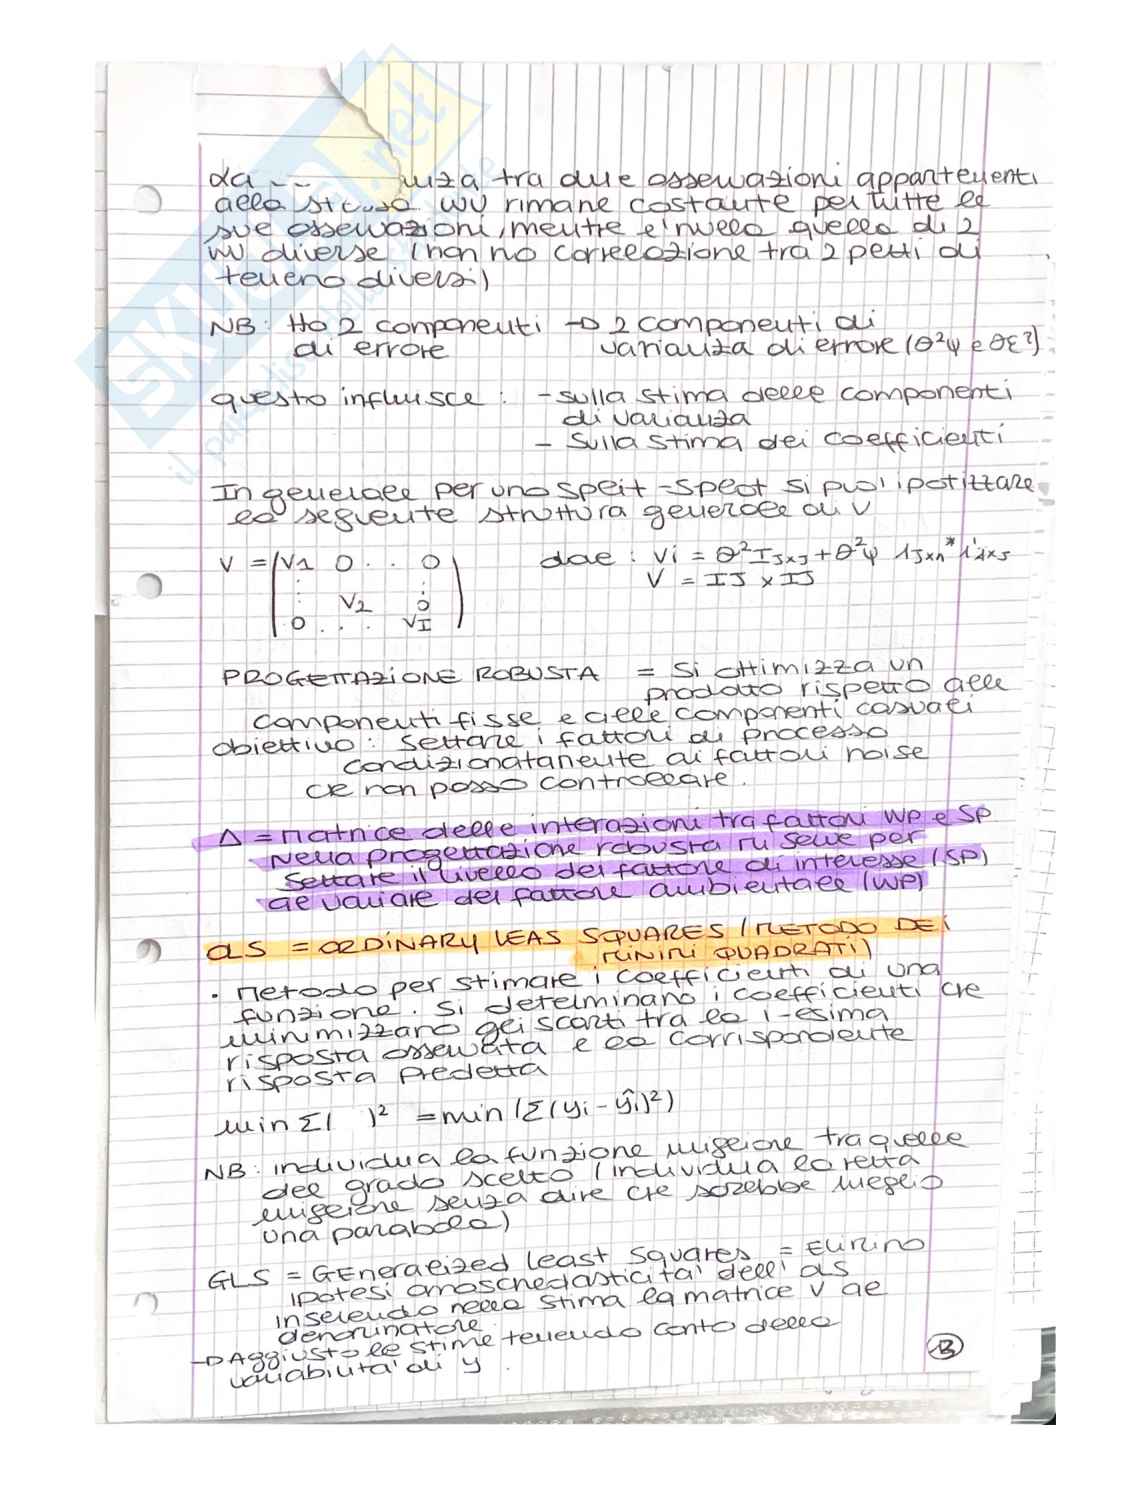 La uza tra due osservazioni appartenenti
alla stessa WU rimane costante per tutte le
sue osservazioni, mentre e' nulla quella di 2
WU diverse (non ho correlazione tra 2 pezzi di
terreno diversi)
NB: Ho 2 componenti → 2 componenti di
di errore varianza di errore (θ²ψ e θε²)
questo influisce : - sulla stima delle componenti
di varianza
- Sulla stima dei coefficienti
In generale per uno Split-Spot si puo' ipotizzare
la seguente struttura generale di V
V = (V1 0 . . 0 dove : Vi = θ² I JxJ + θ²ψ 1Jx1 * 1'1xJ
V2 0 V = IJ x IJ
0 . . . VI)
PROGETTAZIONE ROBUSTA = Si ottimizza un
prodotto rispetto alle
componenti fisse e alle componenti casuali
obiettivo : Settare i fattori di processo
condizionatamente ai fattori noise
che non posso controllare.
Δ = Matrice delle interazioni tra fattori WP e SP
Nella progettazione robusta mi serve per
Settare il livello del fattore di interesse (SP)
al variare del fattore ambientale (WP)
OLS = ORDINARY LEAS SQUARES (METODO DEI
MINIMI QUADRATI)
• Metodo per stimare i coefficienti di una
funzione. Si determinano i coefficienti che
minimizzano gli scarti tra la i-esima
risposta osservata e la corrispondente
risposta predetta
min Σ( )² = min (Σ(yi - ŷi)²)
NB: individua la funzione migliore tra quelle
del grado scelto (individua la retta
migliore senza dire che sarebbe meglio
una parabola)
GLS = GEneralized Least Squares = Elimino
ipotesi omoschedasticita' dell' OLS
inserendo nella stima la matrice V al
denominatore
→ Aggiusto le stime tenendo conto della
variabilita' di y.
13
SKUOLA.net